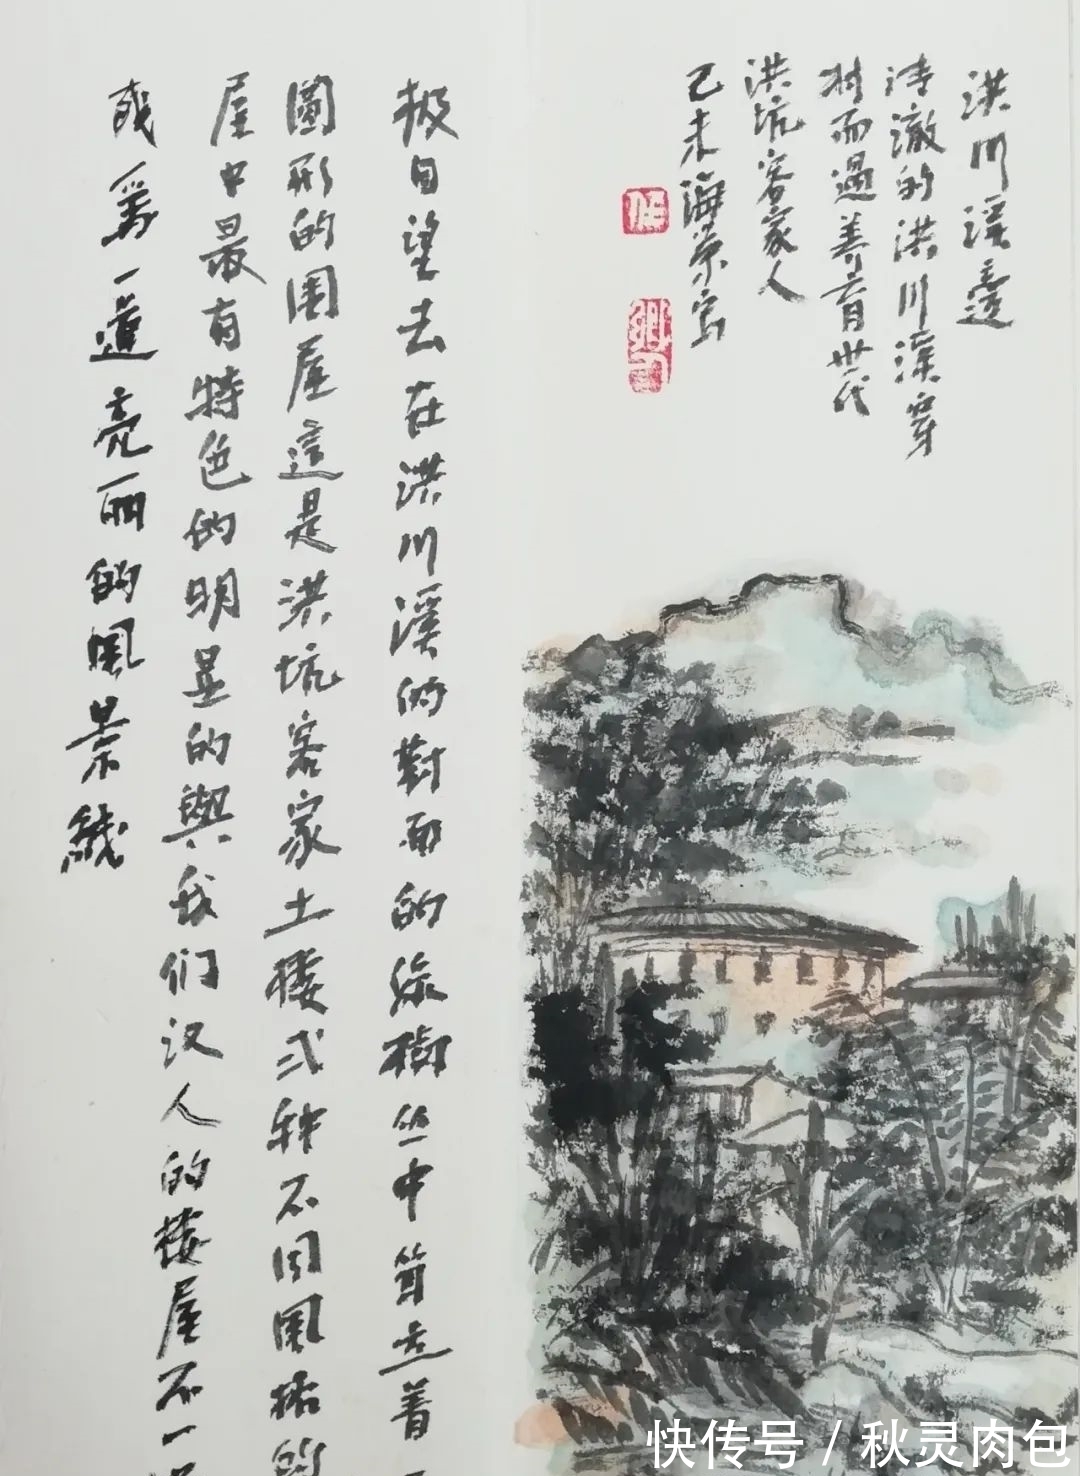 洪川溪邊
清澈的洪川溪穿
村而過養育世代
洪坑客家人
己未海榮寫
极目望去在洪川溪的對面的綠樹丛中耸立着
圓形的围屋這是洪坑客家土楼弍种不同風格的
屋中最有特色的明显的與我们汉人的楼屋不一
成爲一道亮丽的風景线
快传号 / 秋灵肉包